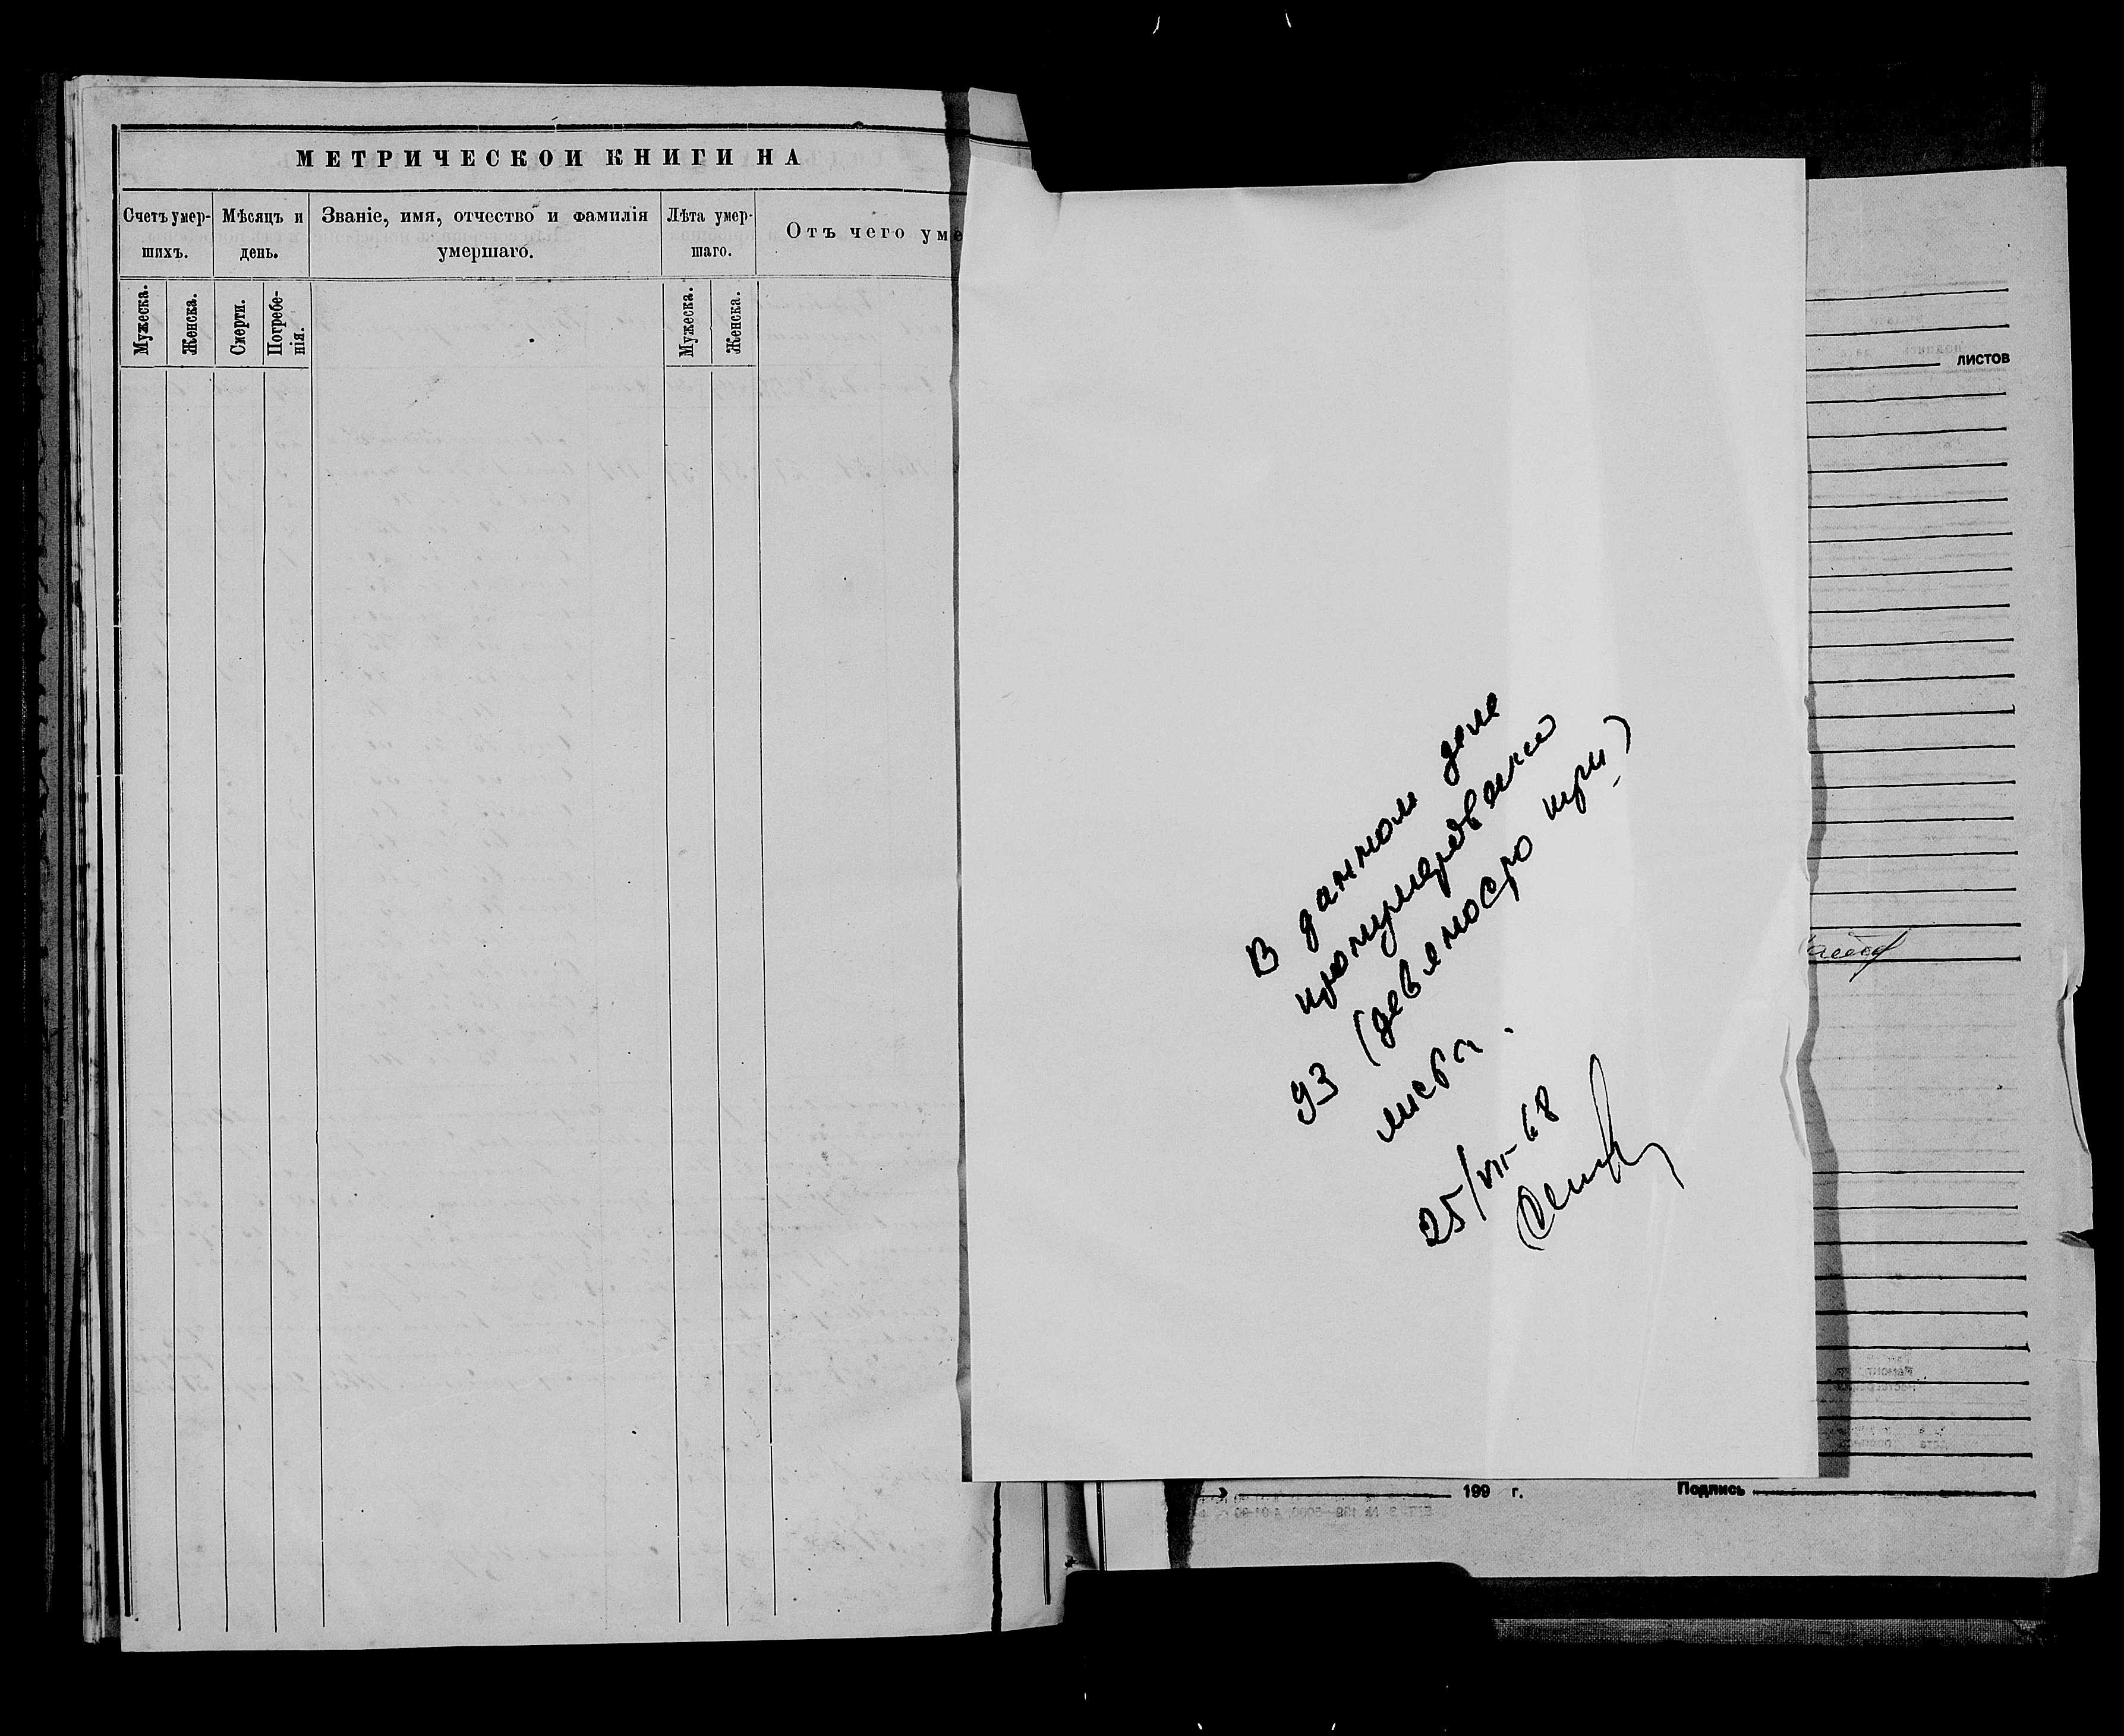 МЕТРИЧЕСКОЙ КНИГИ НА
Счетъ умер-
шихъ.
Мѣсяцъ и
день.
Званіе, имя, отчество и фамилія
умершаго.
Лѣта умер-
шаго.
Отъ чего уме
Мужеска.
Женска.
Смерти.
Погребе-
нія.
Мужеска.
Женска.
В данном деле
пронумеровано
93 (девяносто три)
листа.
25/VII-68
листов
199 г.
Подпись